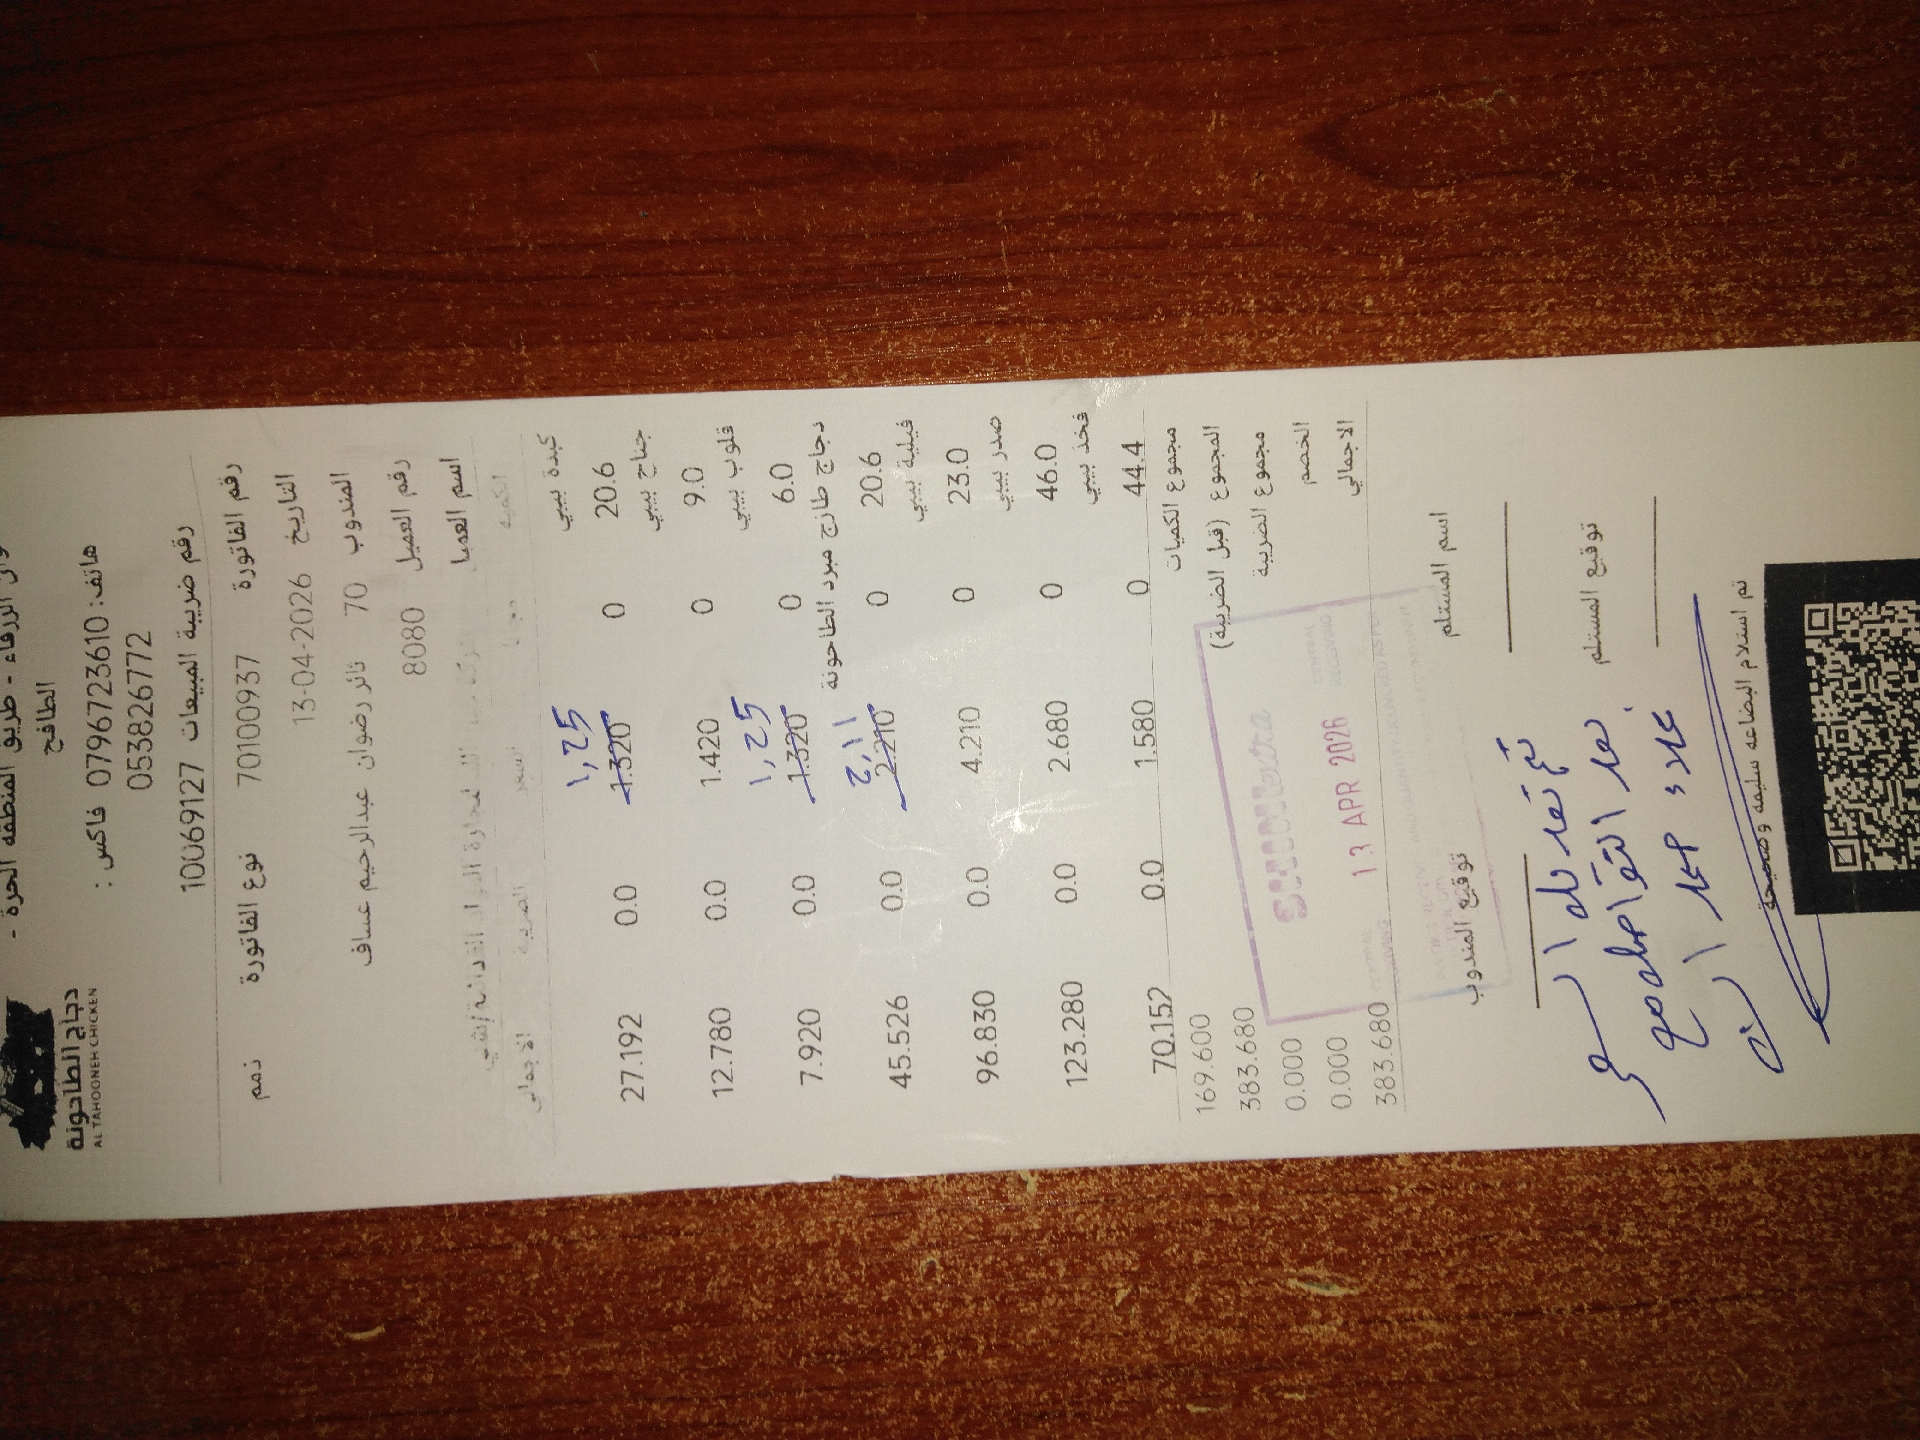 دجاج الطاحونة
AL TAHOONEH CHICKEN
الزرقاء - طريق المنطقه الحرة -
الطافح
هاتف: 0796723610 فاكس :
053826772
رقم ضريبة المبيعات 10069127
رقم الفاتورة 70100937 نوع الفاتورة ذمم
التاريخ 13-04-2026
المندوب 70 ثائر رضوان عبدالرحيم عساف
رقم العميل 8080
اسم العميل
الكميه السعر الضريبة الاجمالي
كبدة بيبي
1,25
20.6 0 1.320 0.0 27.192
جناح بيبي
9.0 0 1.420 0.0 12.780
قلوب بيبي
1,25
6.0 0 1.320 0.0 7.920
دجاج طازج مبرد الطاحونة
2,11
20.6 0 2.210 0.0 45.526
فيليه بيبي
23.0 0 4.210 0.0 96.830
صدر بيبي
46.0 0 2.680 0.0 123.280
فخذ بيبي
44.4 0 1.580 0.0 70.152
مجموع الكميات 169.600
المجموع (قبل الضريبة) 383.680
مجموع الضريبة 0.000
الخصم 0.000
الاجمالي 383.680
13 APR 2026
CENTRAL
RECEIVING
اسم المستلم توقيع المندوب
توقيع المستلم
تم تعديل
بعد التواصل مع
تم استلام البضاعه سليمه وصحيحة